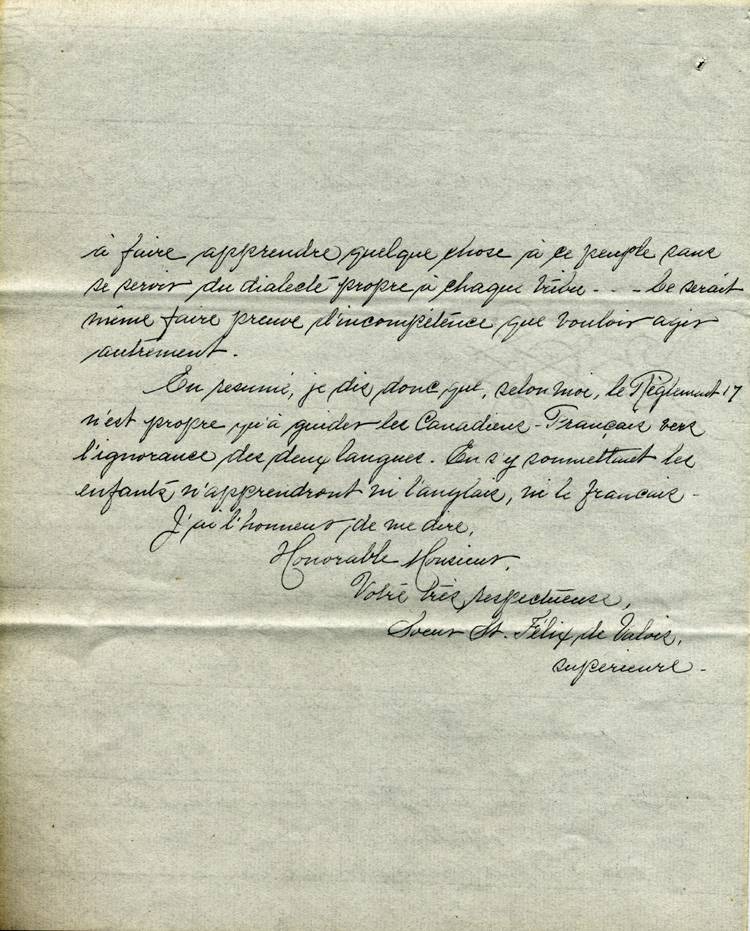 à faire apprendre quelque chose à ce peuple sans
se servir du dialecte propre à chaque tribu - - - Ce serait
même faire preuve d'incompétence que vouloir agir
autrement.
En resumé, je dis donc que, selon moi, le Règlement 17
n'est propre qu'à guider les Canadiens-Français vers
l'ignorance des deux langues. En s'y soumettant les
enfants n'apprendront ni l'anglais, ni le français -
J'ai l'honneur, de me dire,
Honorable Monsieur,
Votre très respectueuse,
Soeur St. Félix de Valois,
superieure -